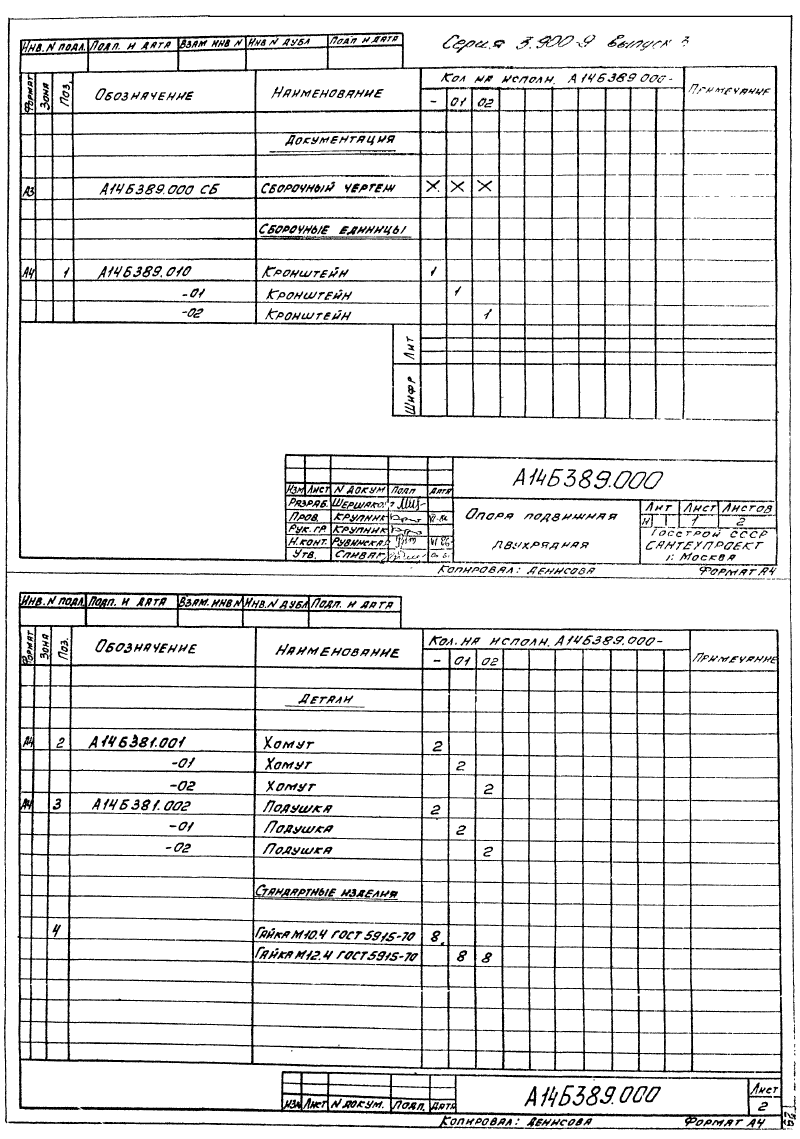 Серия 3.900-9 выпуск 3
Инв. N подл. Подп. и дата Взам инв N Инв N дубл Подп и дата
Формат Зона Поз. Обозначение Наименование Кол на исполн. А14Б389.000- Примечание
- 01 02
Документация
А3 А14Б389.000 СБ Сборочный чертеж X X X
Сборочные единицы
А4 1 А14Б389.010 Кронштейн 1
-01 Кронштейн 1
-02 Кронштейн 1
Лит
Шифр
А14Б389.000
Изм Лист N докум Подп Дата
Разраб.
Пров. Крупник
Рук. гр Крупник
Н.конт. Рувинская
Утв. Спивак
Опора подвижная
двухрядная
Лит Лист Листов
И 1 2
Госстрой СССР
Сантехпроект
г. Москва
Копировал: Денисова Формат А4
Инв. N подл. Подп. и дата Взам. инв N Инв. N дубл Подп. и дата
Формат Зона Поз. Обозначение Наименование Кол. на исполн. А14Б389.000- Примечание
- 01 02
Детали
А4 2 А14Б381.001 Хомут 2
-01 Хомут 2
-02 Хомут 2
А4 3 А14Б381.002 Подушка 2
-01 Подушка 2
-02 Подушка 2
Стандартные изделия
4 Гайка М10.4 ГОСТ 5915-70 8
Гайка М12.4 ГОСТ 5915-70 8 8
Изм Лист N докум. Подп. Дата
А14Б389.000
Лист
2
Копировал: Денисова Формат А4